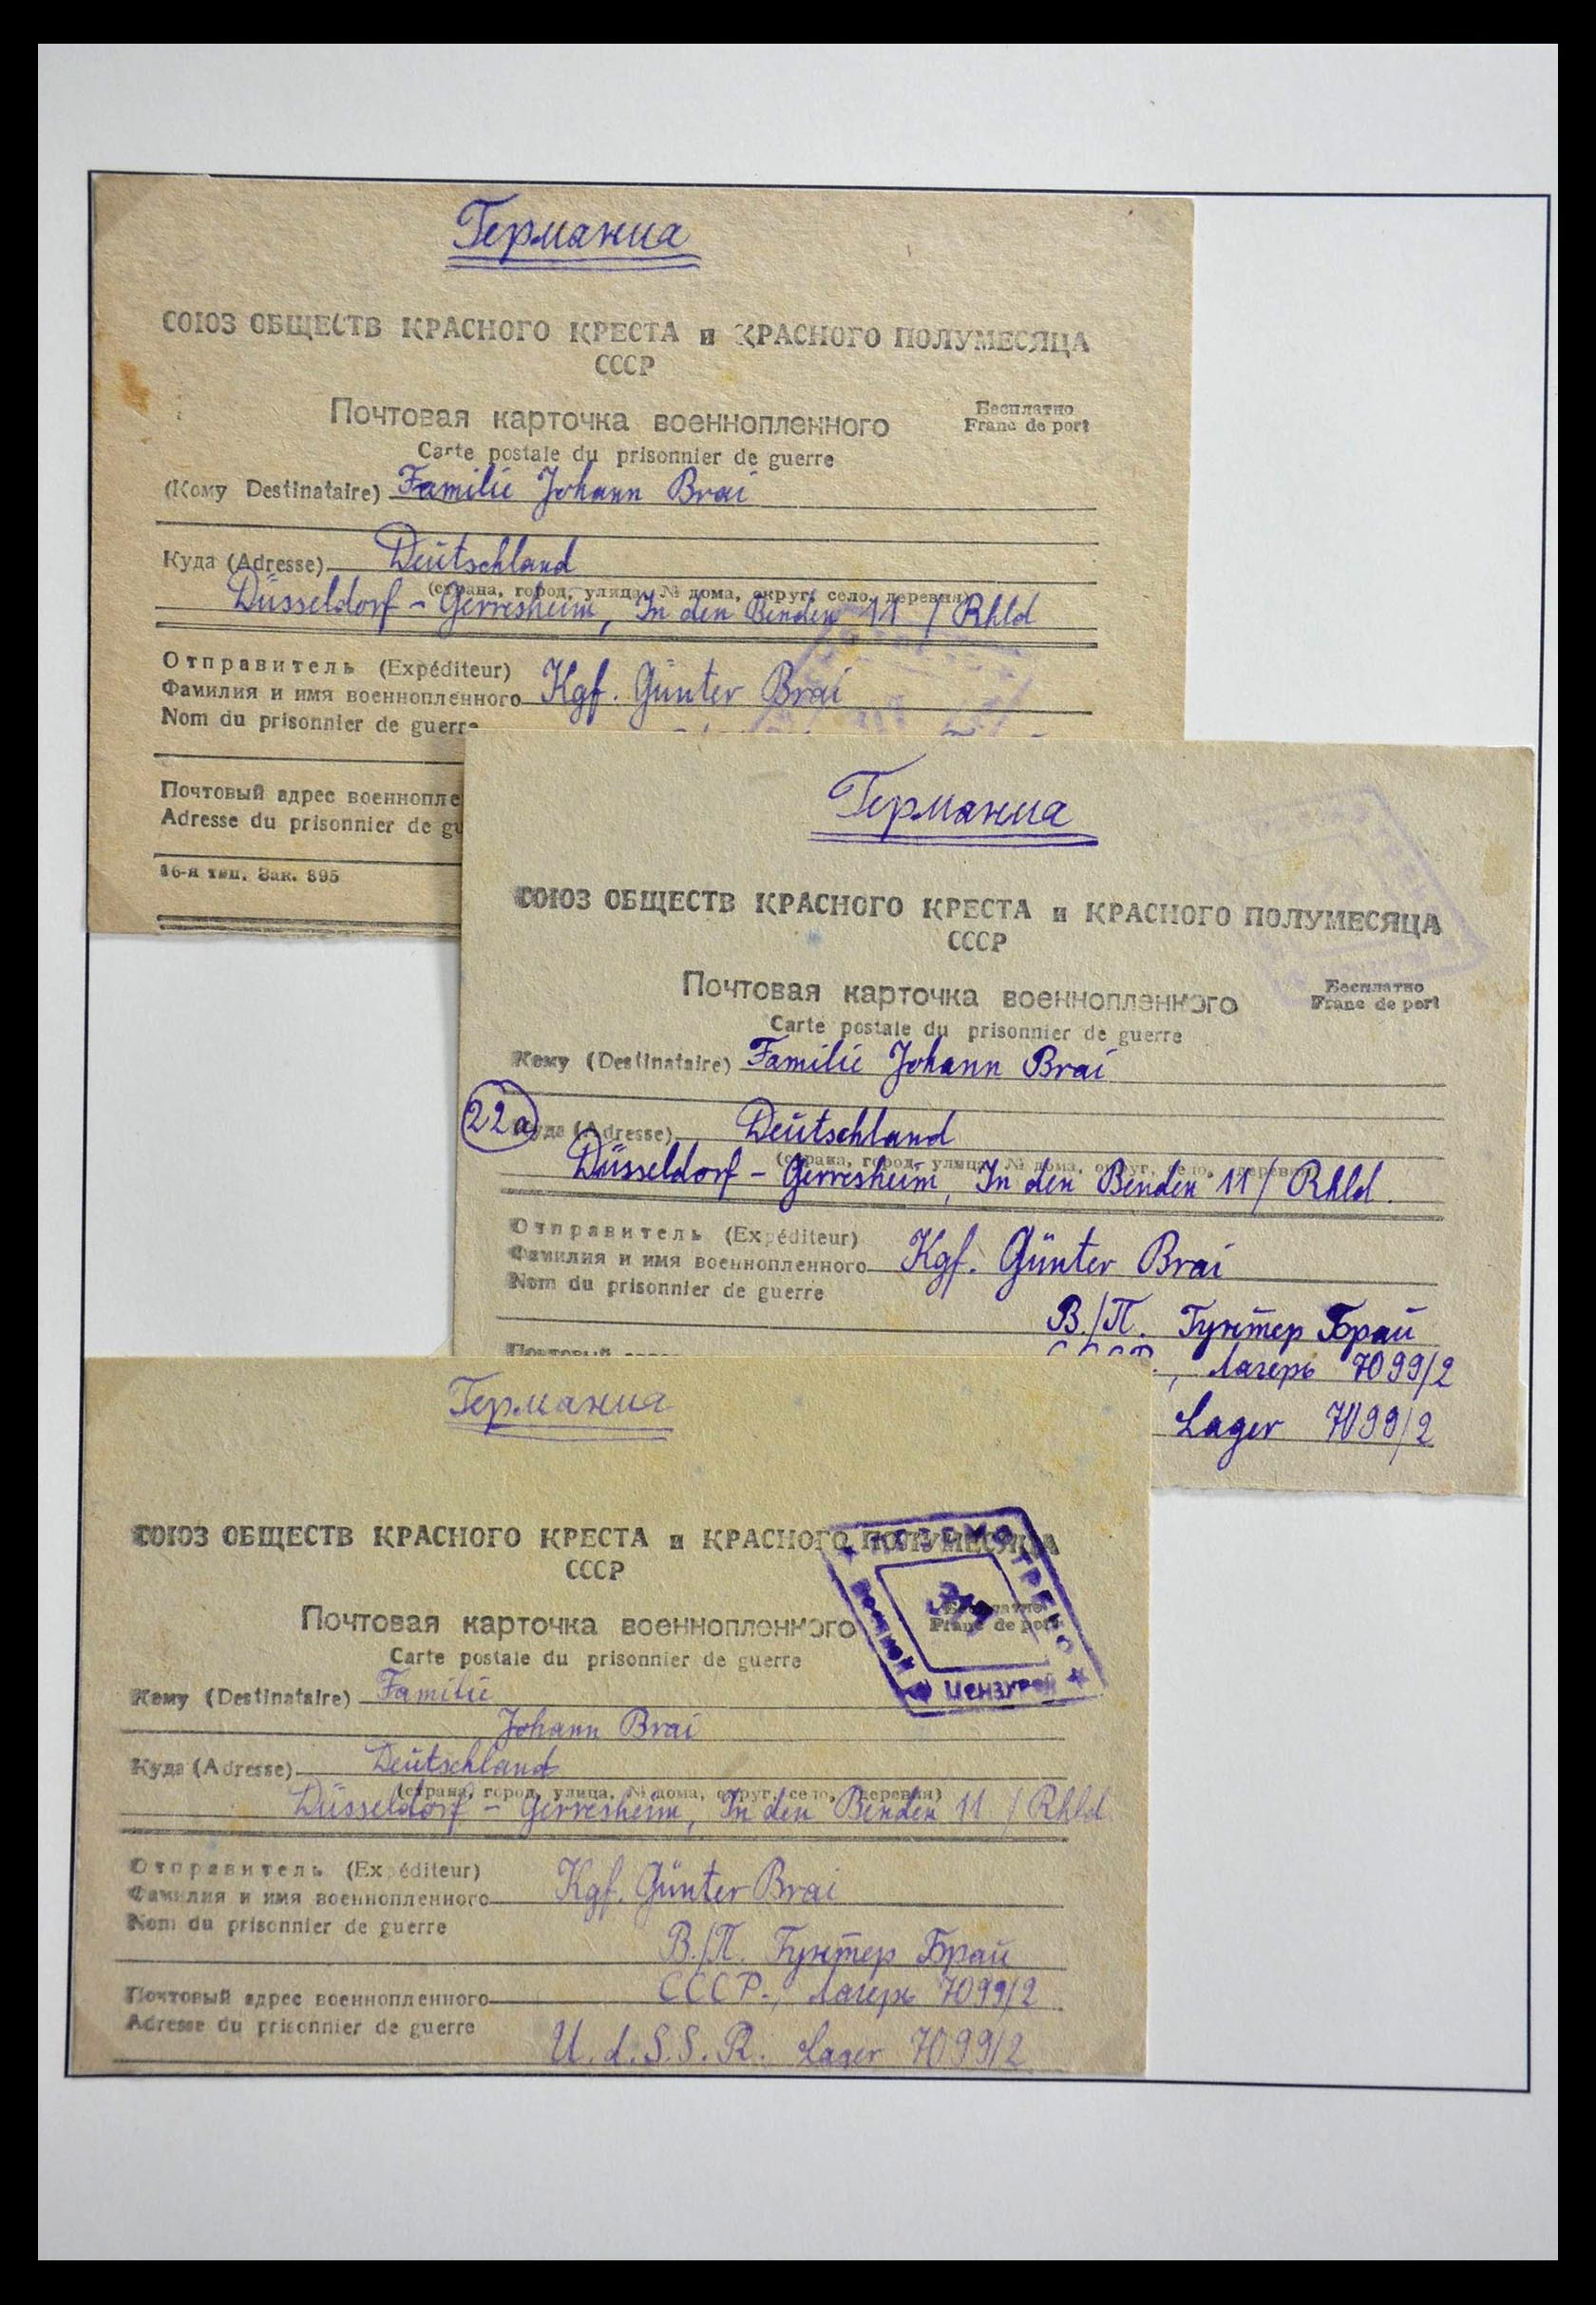 Германиа
СОЮЗ ОБЩЕСТВ КРАСНОГО КРЕСТА и КРАСНОГО ПОЛУМЕСЯЦА
СССР
Почтовая карточка военнопленного
Бесплатно
Franc de port
Carte postale du prisonnier de guerre
(Кому Destinataire) Familie Johann Brai
Куда (Adresse) Deutschland
(страна, город, улица, № дома, округ, село, деревня)
Düsseldorf - Gerresheim, In den Benden 11 / Rhld
Отправитель (Expéditeur)
Фамилия и имя военнопленного Kgf. Günter Brai
Nom du prisonnier de guerre
Почтовый адрес военнопле
Adresse du prisonnier de gu
16-я тип. Зак. 895
Германиа
СОЮЗ ОБЩЕСТВ КРАСНОГО КРЕСТА и КРАСНОГО ПОЛУМЕСЯЦА
СССР
Почтовая карточка военнопленного
Бесплатно
Franc de port
Carte postale du prisonnier de guerre
Кому (Destinataire) Familie Johann Brai
22a
Куда (Adresse) Deutschland
(страна, город, улица, № дома, округ, село, деревня)
Düsseldorf - Gerresheim, In den Benden 11 / Rhld.
Отправитель (Expéditeur)
Фамилия и имя военнопленного Kgf. Günter Brai
Nom du prisonnier de guerre
В./П. Гунтер Брай
Почтовый
СССР., Лагерь 7099/2
Lager 7099/2
Германиа
СОЮЗ ОБЩЕСТВ КРАСНОГО КРЕСТА и КРАСНОГО ПОЛУМЕСЯЦА
СССР
Почтовая карточка военнопленного
Бесплатно
Franc de port
ПРОСМОТРЕНО
ВОЕННОЙ
ЦЕНЗУРОЙ
Carte postale du prisonnier de guerre
Кому (Destinataire) Familie
Johann Brai
Куда (Adresse) Deutschland
(страна, город, улица, № дома, округ, село, деревня)
Düsseldorf - Gerresheim, In den Benden 11 / Rhld.
Отправитель (Expéditeur)
Фамилия и имя военнопленного Kgf. Günter Brai
Nom du prisonnier de guerre
В./П. Гунтер Брай
Почтовый адрес военнопленного СССР., Лагерь 7099/2
Adresse du prisonnier de guerre
U.d.S.S.R. Lager 7099/2